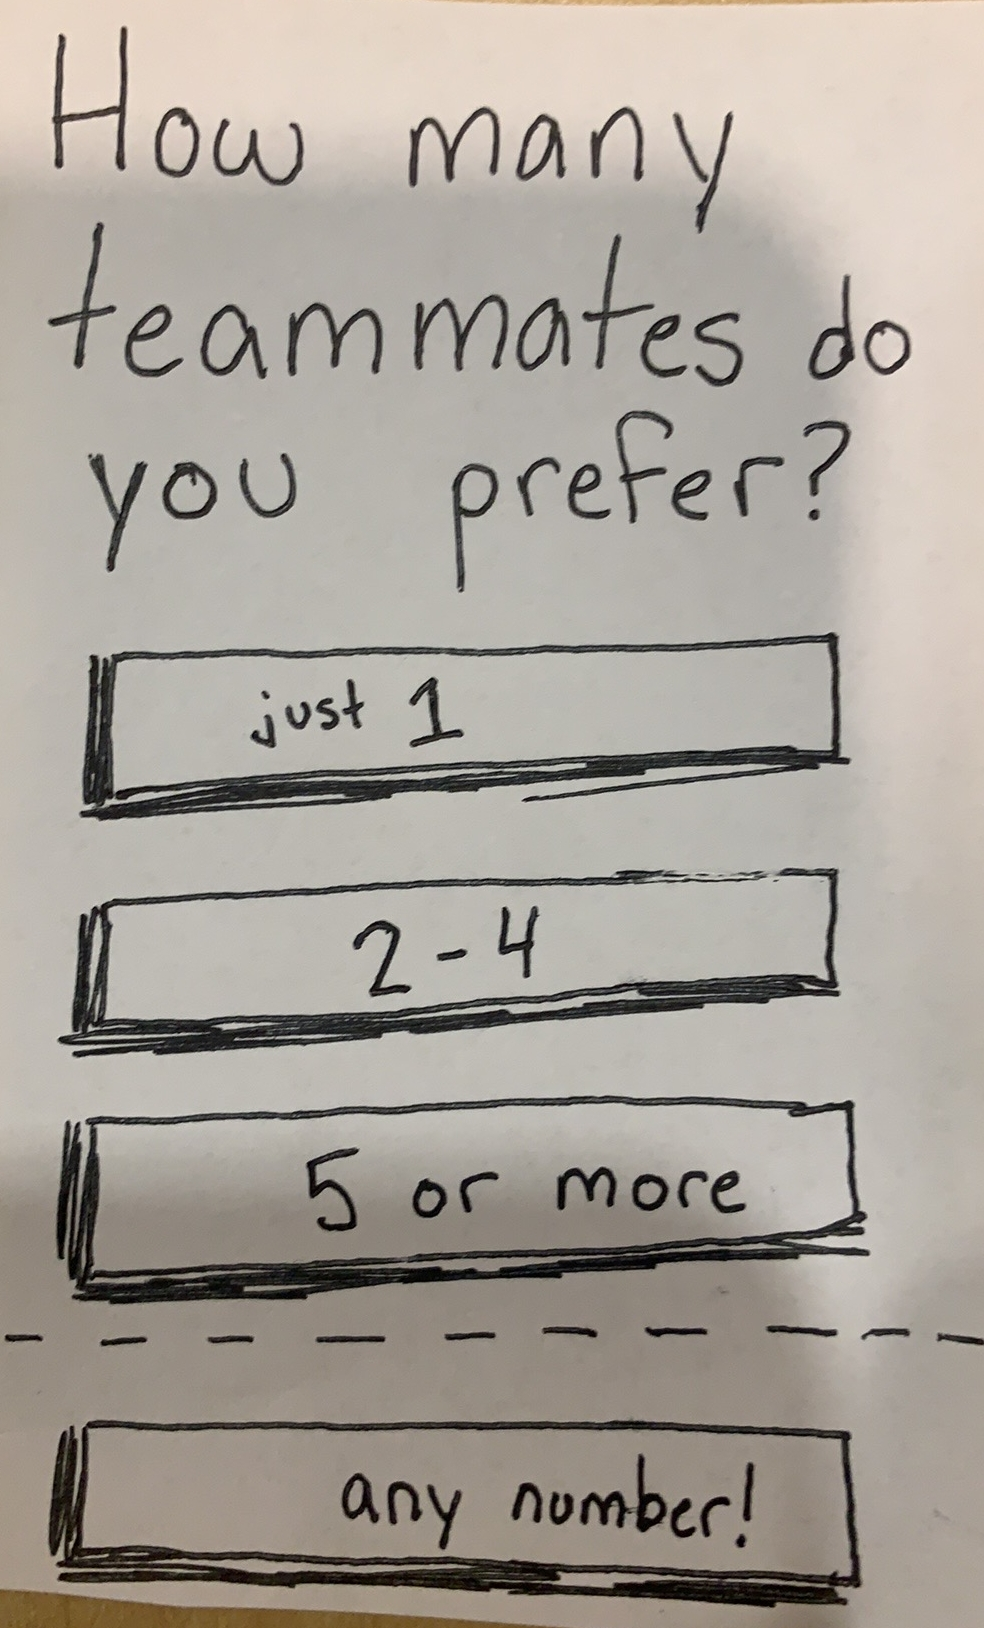 How many
teammates do
you prefer?
just 1
2-4
5 or more
any number!